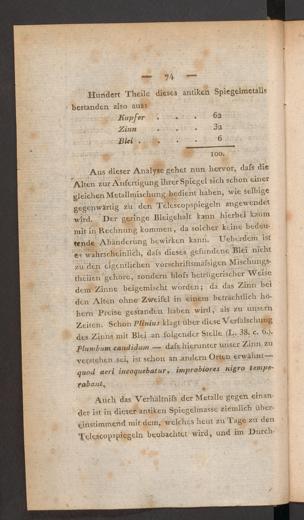 — 74 —
Hundert Theile dieses antiken Spiegelmetalls
bestanden also aus:
Kupfer . . . 62
Zinn . . . 32
Blei . . . 6
100.
Aus dieser Analyse gehet nun hervor, daſs die
Alten zur Anfertigung ihrer Spiegel sich schon einer
gleichen Metallmischung bedient haben, wie selbige
gegenwärtig zu den Telescopspiegeln angewendet
wird. Der geringe Bleigehalt kann hierbei kaum
mit in Rechnung kommen, da solcher keine bedeu-
tende Abänderung bewirken kann. Ueberdem ist
es wahrscheinlich, daſs dieses gefundene Blei nicht
zu den eigentlichen vorschriftsmäſsigen Mischungs-
theilen gehöre, sondern bloſs betrügerischer Weise
dem Zinne beigemischt worden; da das Zinn bei
den Alten ohne Zweifel in einem beträchtlich hö-
hern Preise gestanden haben wird, als zu unsern
Zeiten. Schon Plinius klagt über diese Verfälschung
des Zinns mit Blei an folgender Stelle (L. 38. c. 6.).
Plumbum candidum — daſs hierunter unser Zinn zu
verstehen sei, ist schon an andern Orten erwähnt —
quod aeri incoquebatur, improbiores nigro tempe-
rabant.
Auch das Verhältniſs der Metalle gegen einan-
der ist in dieser antiken Spiegelmasse ziemlich über-
einstimmend mit dem, welches heut zu Tage zu den
Telescopspiegeln beobachtet wird, und im Durch-